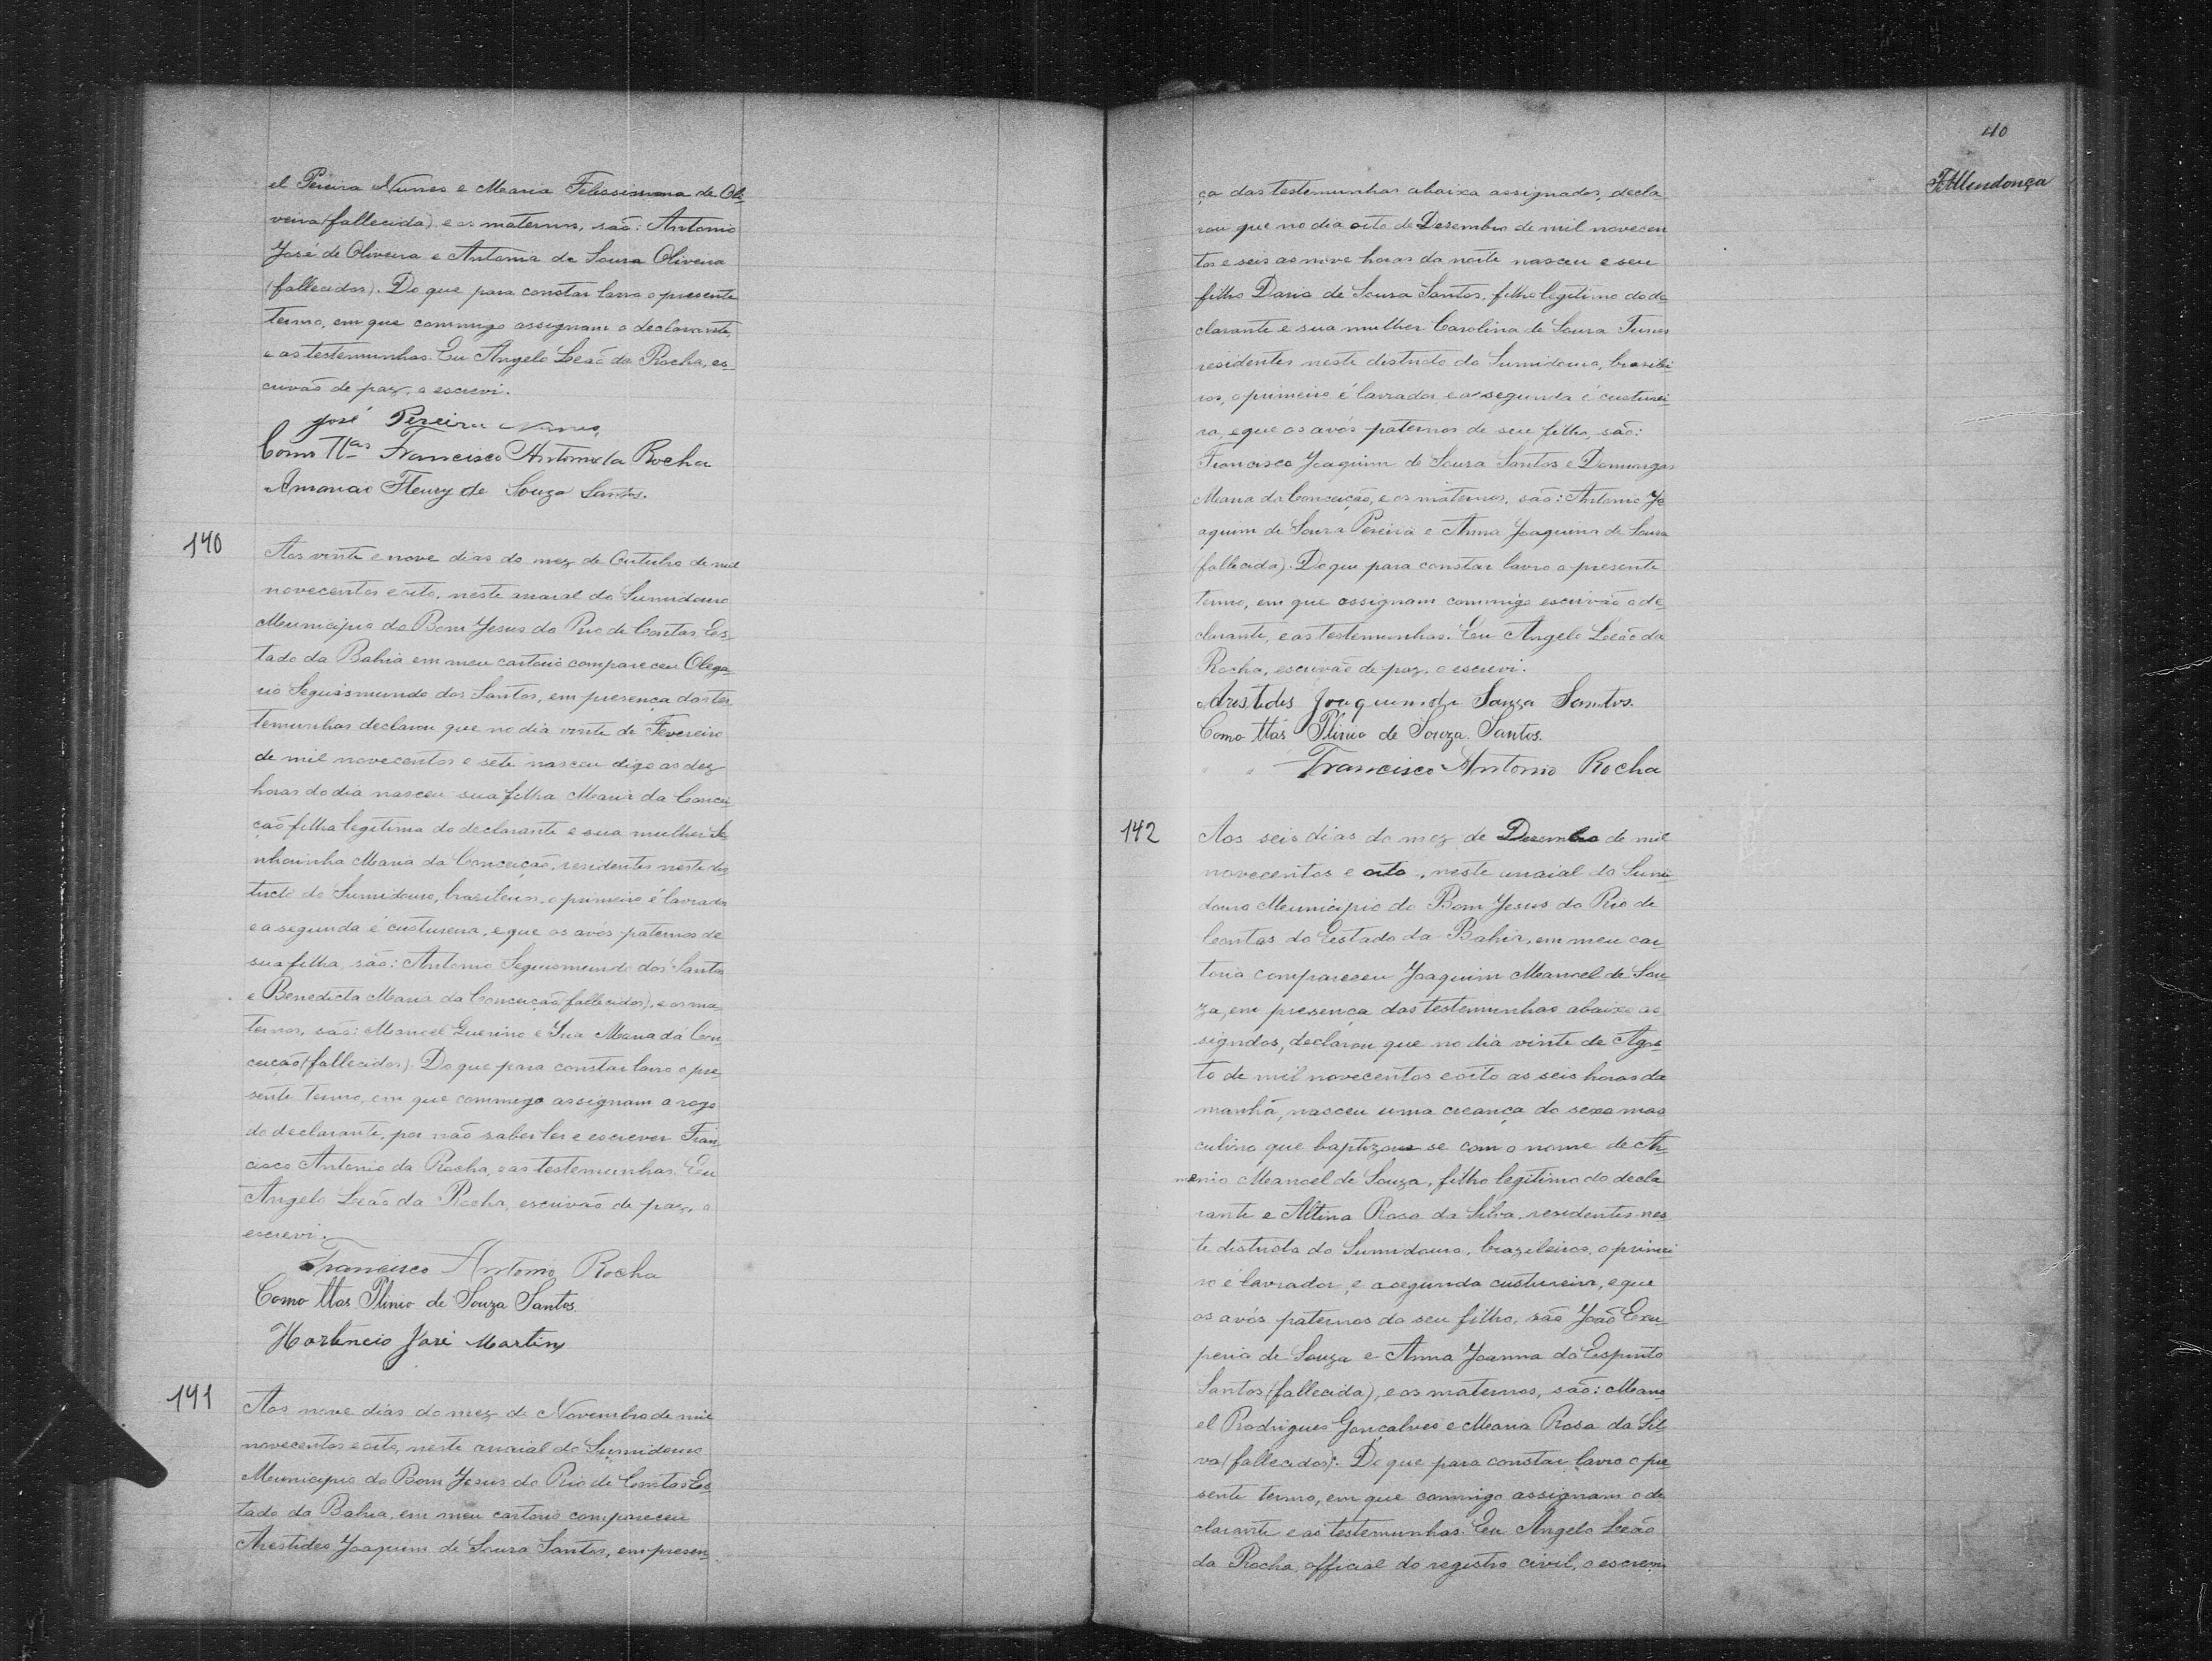 el Pereira Nunes e Maria Felissimma de Oli-
veira (fallecida) e os maternos, são: Antonio
José de Oliveira e Antonia de Sousa Oliveira
(fallecidos). Do que para constar lavro o presente
termo, em que commigo assignam o declarante,
e as testemunhas. Eu Angelo Leão da Rocha, es-
crivão de paz, o escrevi.
José Pereira Nunes,
Como Tas Francisco Antonio da Rocha
Fleury de Souza Santos.
140
Aos vinte e nove dias do mez de Outubro de mil
novecentos e oito, neste arraial do Sumidouro
Municipio do Bom Jesus do Rio de Contas Es-
tado da Bahia em meu cartorio compareceu Olega-
rio Seguismundo dos Santos, em presença das tes-
temunhas declarou que no dia vinte de Fevereiro
de mil novecentos e sete nasceu digo as dez
horas do dia nasceu sua filha Maria da Concei-
ção filha legitima do declarante e sua mulher Se-
nhorinha Maria da Conceição, residentes neste dis-
tricto do Sumidouro, brasileiros, o primeiro é lavrador
e a segunda é custureira, e que os avós paternos de
sua filha, são: Antonio Seguismundo dos Santos
e Benedicta Maria da Conceição (fallecidos), e os ma-
ternos, são: Manoel Guerino e Maria da Con-
ceicão (fallecidos). Do que para constar lavro o pre-
sente termo, em que commigo assignam a rogo
do declarante, por não saber ler e escrever Fran-
cisco Antonio da Rocha, e as testemunhas. Eu
Angelo Leão da Rocha, escrivão de paz, o
escrevi.
Francisco Antonio Rocha
Como ttas Plinio de Souza Santos.
Hortencio José Martins
141
Aos nove dias do mez de Novembro de mil
novecentos e oito, neste arraial do Sumidouro
Municipio do Bom Jesus do Rio de Contas Es-
tado da Bahia, em meu cartorio compareceu
Arestides Joaquim de Sousa Santos, em presen-
40
FMendonça
ça das testemunhas abaixa assignados, decla-
rou que no dia oito de Desembro de mil novecen-
tos e seis as nove horas da noite nasceu e seu
filho Dario de Sousa Santos, filho legitimo do de-
clarante e sua mulher Carolina de Sousa Funes
residentes neste districto do Sumidouro, brasilei-
ros, o primeiro é lavrador e a segunda é custurei-
ra, e que os avós paternos de seu filho, são:
Francisco Joaquim de Sousa Santos e Domingas
Maria da Conceição, e os maternos, são: Antonio Jo-
aquim de Sousa Pereira e Anna Joaquina de Sousa
(fallecida). Do que para constar lavro o presente
termo, em que assignam commigo escrivão o de-
clarante, e as testemunhas. Eu Angelo Leão da
Rocha, escrivão de paz, o escrevi.
Aristides Joaquim de Souza Santos.
Como ttas Plinio de Souza Santos.
" " Francisco Antonio Rocha
142
Aos seis dias do mez de Desembro de mil
novecentos e oito, neste arraial do Sumi-
douro Municipio do Bom Jesus do Rio de
Contas do Estado da Bahia, em meu car-
torio compareceu Joaquim Manoel de Sou-
za, em presença das testemunhas abaixo as-
signdos, declarou que no dia vinte de Agos-
to de mil novecentos e oito as seis horas da
manhã, nasceu uma creança do sexo mas-
culino que baptizou-se com o nome de Ar-
menio Manoel de Souza, filho legitimo do decla-
rante e Altina Rosa da Silva, residentes nes-
te districto do Sumidouro, brazileiros, o primei-
ro é lavrador, e a segunda custureira, e que
os avós paternos do seu filho, são João Exu-
perio de Souza e Anna Joanna do Espirito
Santos (fallecida), e os maternos, são: Mano-
el Rodrigues Gonçalves e Maria Rosa da Sil-
va (fallecidos). Do que para constar lavro o pre-
sente termo, em que commigo assignam o de-
clarante e as testemunhas. Eu Angelo Leão
da Rocha, official do registro civil, o escrevi.